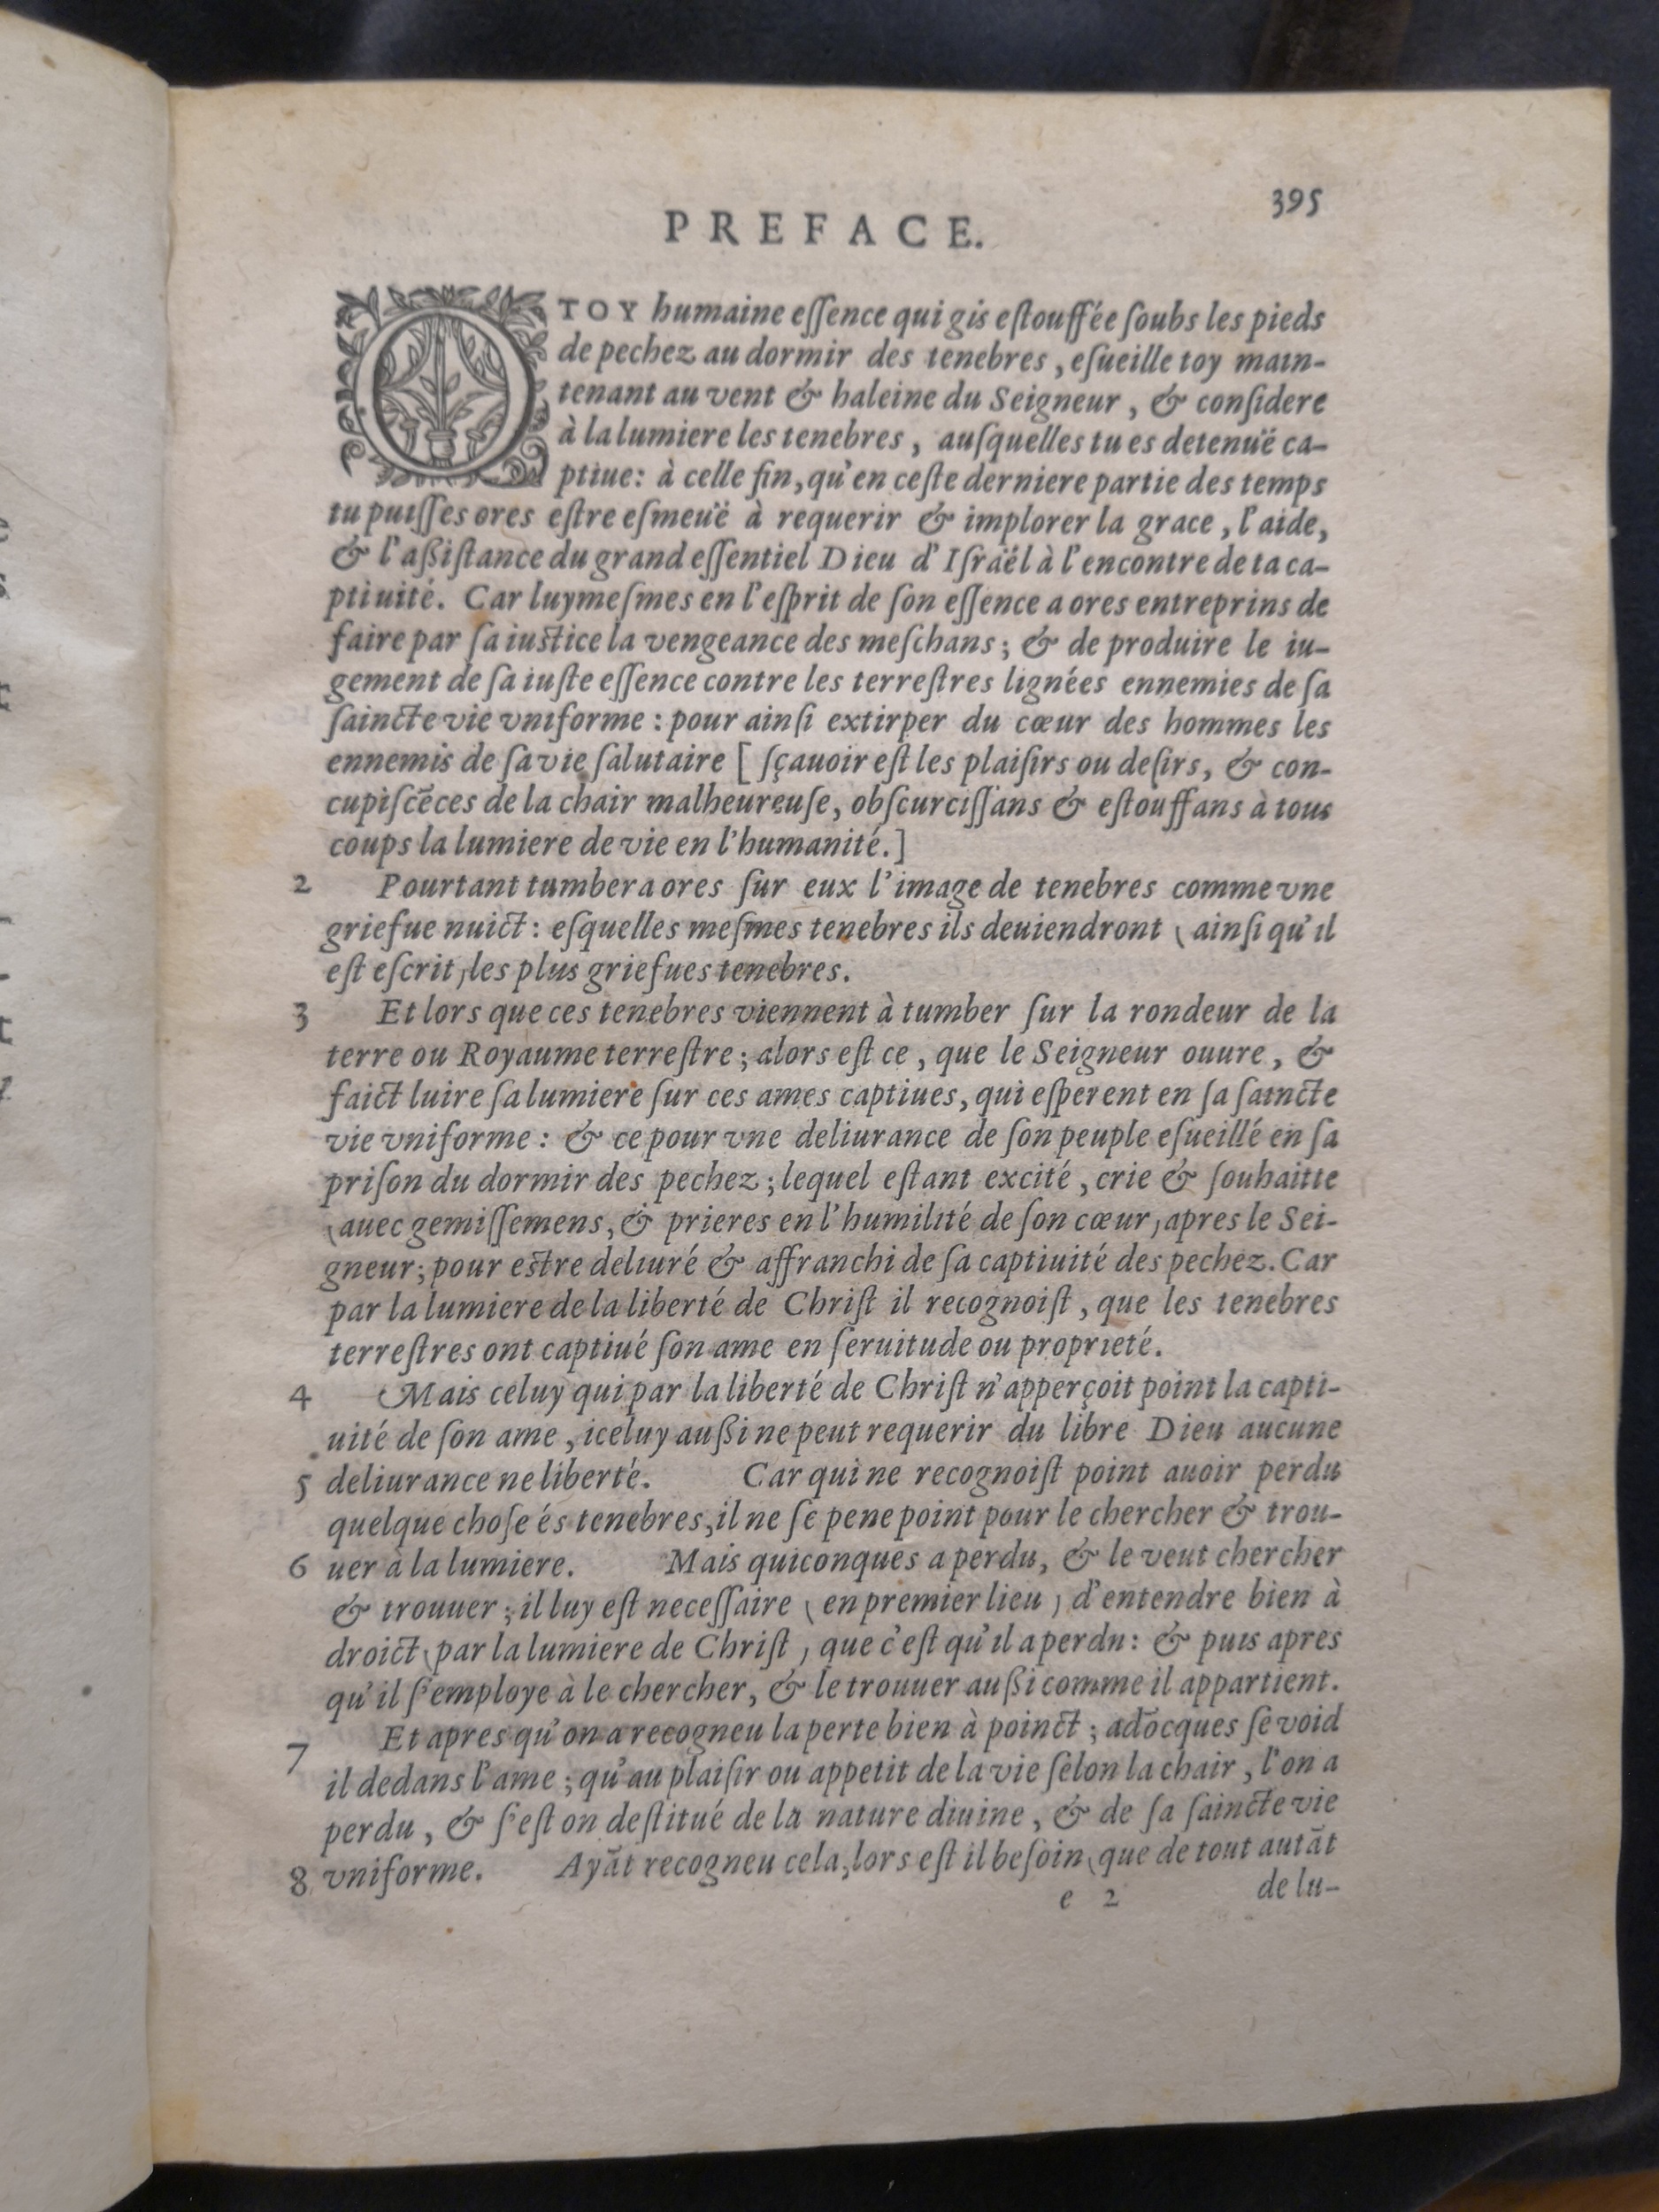 395
PREFACE.
O TOY humaine eſſence qui gis eſtouffée ſoubs les pieds
de pechez au dormir des tenebres, eſueille toy main-
tenant au vent & haleine du Seigneur, & conſidere
à la lumiere les tenebres, auſquelles tu es detenuë ca-
ptiue: à celle fin, qu'en ceſte derniere partie des temps
tu puiſſes ores eſtre eſmeuë à requerir & implorer la grace, l'aide,
& l'aßiſtance du grand eſſentiel Dieu d'Iſraël à l'encontre de ta ca-
ptiuité. Car luymeſmes en l'eſprit de ſon eſſence a ores entreprins de
faire par ſa iuſtice la vengeance des meſchans; & de produire le iu-
gement de ſa iuſte eſſence contre les terreſtres lignées ennemies de ſa
ſaincte vie vniforme: pour ainſi extirper du cœur des hommes les
ennemis de ſa vie ſalutaire [ ſçauoir eſt les plaiſirs ou deſirs, & con-
cupiſcēces de la chair malheureuſe, obſcurciſſans & eſtouffans à tous
coups la lumiere de vie en l'humanité.]
2 Pourtant tumbera ores ſur eux l'image de tenebres comme vne
griefue nuict: eſquelles meſmes tenebres ils deuiendront (ainſi qu'il
eſt eſcrit) les plus griefues tenebres.
3 Et lors que ces tenebres viennent à tumber ſur la rondeur de la
terre ou Royaume terreſtre; alors eſt ce, que le Seigneur ouure, &
faict luire ſa lumiere ſur ces ames captiues, qui eſperent en ſa ſaincte
vie vniforme: & ce pour vne deliurance de ſon peuple eſueillé en ſa
priſon du dormir des pechez; lequel eſtant excité, crie & ſouhaitte
(auec gemiſſemens, & prieres en l'humilité de ſon cœur) apres le Sei-
gneur; pour eſtre deliuré & affranchi de ſa captiuité des pechez. Car
par la lumiere de la liberté de Chriſt il recognoiſt, que les tenebres
terreſtres ont captiué ſon ame en ſeruitude ou proprieté.
4 Mais celuy qui par la liberté de Chriſt n'apperçoit point la capti-
uité de ſon ame, iceluy außi ne peut requerir du libre Dieu aucune
5 deliurance ne liberté. Car qui ne recognoiſt point auoir perdu
quelque choſe és tenebres, il ne ſe pene point pour le chercher & trou-
6 uer à la lumiere. Mais quiconques a perdu, & le veut chercher
& trouuer; il luy eſt neceſſaire (en premier lieu) d'entendre bien à
droict (par la lumiere de Chriſt) que c'eſt qu'il a perdu: & puis apres
qu'il ſ'employe à le chercher, & le trouuer außi comme il appartient.
7 Et apres qu'on a recogneu la perte bien à poinct; adōcques ſe void
il dedans l'ame; qu'au plaiſir ou appetit de la vie ſelon la chair, l'on a
perdu, & ſ'eſt on deſtitué de la nature diuine, & de ſa ſaincte vie
8 vniforme. Ayāt recogneu cela, lors eſt il beſoin (que de tout autāt
e 2 de lu-